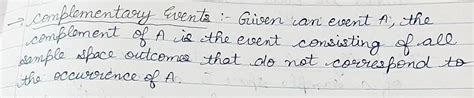 → complementary Events :- Given an event A, the
complement of A is the event consisting of all
sample space outcomes that do not correspond to
the occurrence of A.